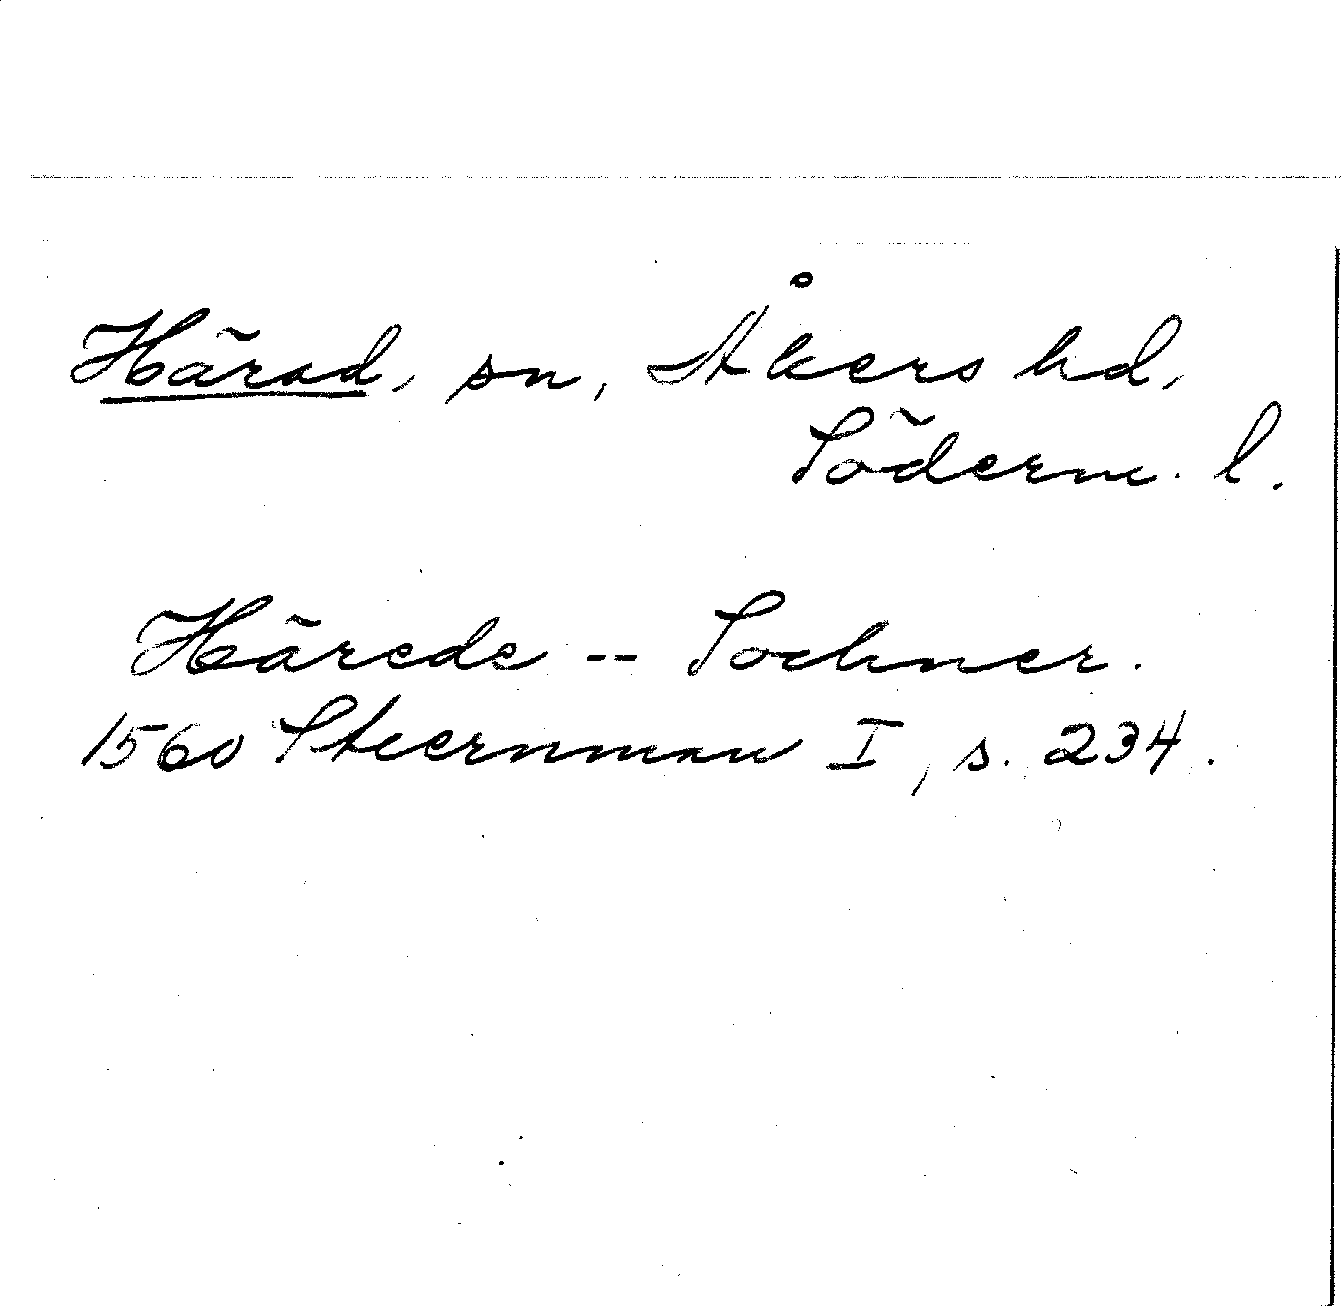 Härad, sn, Åkers hd,
Söderm. l.
Härede -- Sochner.
1560 Stiernman I, s. 234.